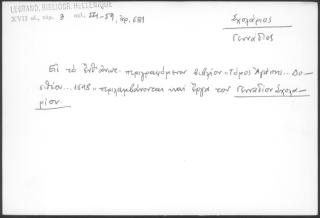 LEGRAND, BIBLIOGR. HELLENIQUE
XVII αἰ. τόμ. 3 σελ. 221-59, ἀρ. 681
Σχολάριος
Γεννάδιος
Εἰς τό ἔνθ' ἄνω περιγραφόμενον βιβλίον "Τόμος Ἀγάπης... Δο-
σιθέου... 1698" περιλαμβάνονται καί ἔργα τοῦ Γενναδίου Σχολα-
ρίου.